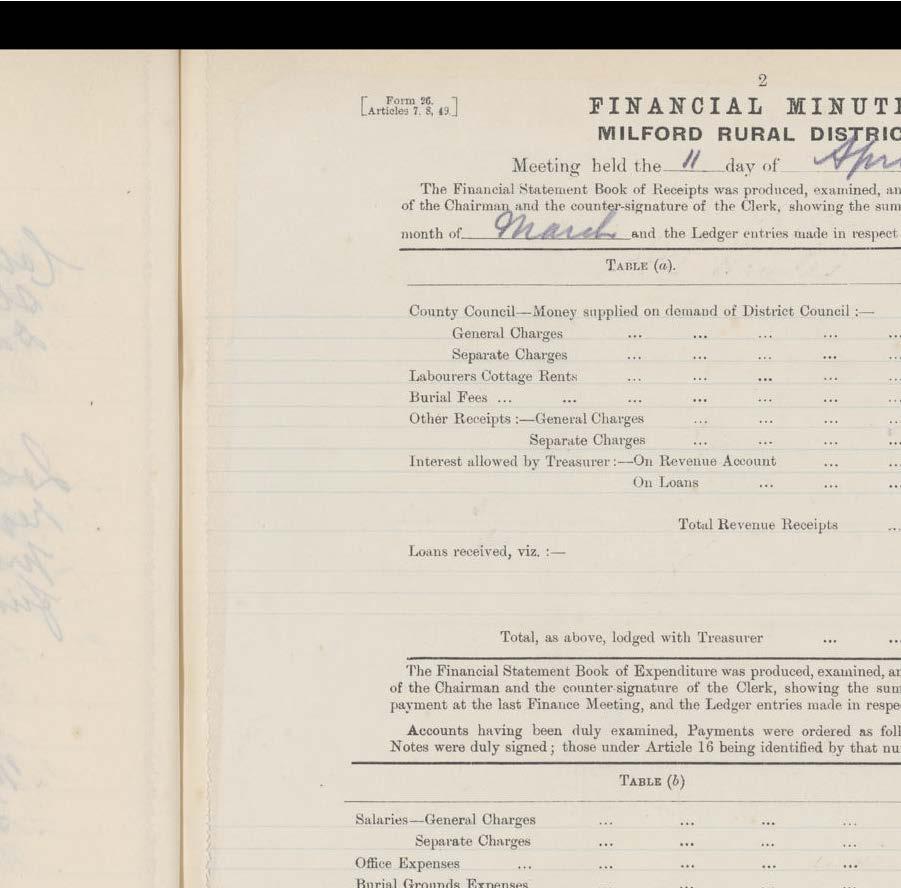 2
[Form 26.
Articles 7. 8, 49.]
FINANCIAL MINUT
MILFORD RURAL DISTRIC
Meeting held the 11 day of Apri
The Financial Statement Book of Receipts was produced, examined, an
of the Chairman and the counter-signature of the Clerk, showing the sum
month of March and the Ledger entries made in respect
TABLE (a).
County Council—Money supplied on demand of District Council :—
General Charges ... ... ... ... ...
Separate Charges ... ... ... ... ...
Labourers Cottage Rents ... ... ... ... ...
Burial Fees ... ... ... ... ... ... ...
Other Receipts :—General Charges ... ... ... ...
Separate Charges ... ... ... ...
Interest allowed by Treasurer :—On Revenue Account ... ...
On Loans ... ... ...
Total Revenue Receipts ...
Loans received, viz. :—
Total, as above, lodged with Treasurer ... ...
The Financial Statement Book of Expenditure was produced, examined, an
of the Chairman and the counter-signature of the Clerk, showing the sum
payment at the last Finance Meeting, and the Ledger entries made in respe
Accounts having been duly examined, Payments were ordered as foll
Notes were duly signed; those under Article 16 being identified by that nu
TABLE (b)
Salaries—General Charges ... ... ... ...
Separate Charges ... ... ... ...
Office Expenses ... ... ... ... ...
Burial Grounds Expenses